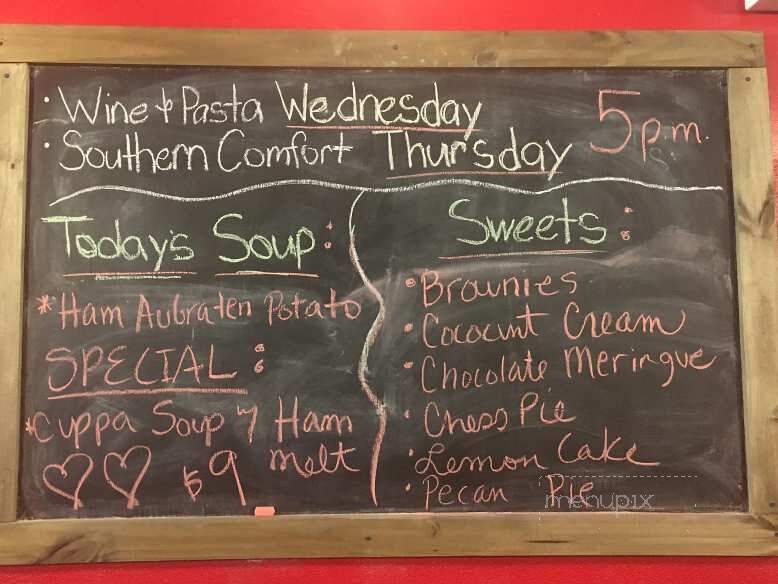 · Wine & Pasta Wednesday 5 p.m.
· Southern Comfort Thursday
Today's Soup:
*Ham Aubraten Potato
SPECIAL:
*Cuppa Soup y Ham
melt
$9
Sweets:
· Brownies
· Cococunt Cream
· Chocolate Meringue
· Chess Pie
· Lemon Cake
· Pecan Pie
menupix